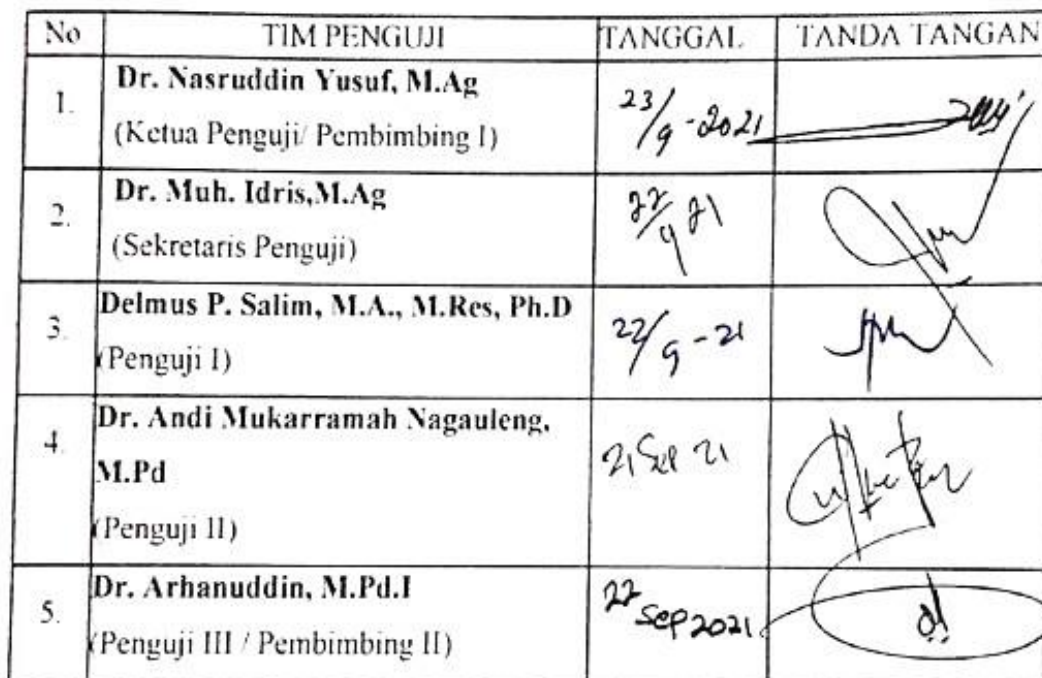 No TIM PENGUJI TANGGAL TANDA TANGAN
1. Dr. Nasruddin Yusuf, M.Ag
(Ketua Penguji/ Pembimbing I) 23/9 - 2021
2. Dr. Muh. Idris,M.Ag
(Sekretaris Penguji) 22/9 21
3. Delmus P. Salim, M.A., M.Res, Ph.D
(Penguji I) 22/9 - 21
4. Dr. Andi Mukarramah Nagauleng,
M.Pd 21 Sep 21
(Penguji II)
5. Dr. Arhanuddin, M.Pd.I
(Penguji III / Pembimbing II) 22 Sep 2021